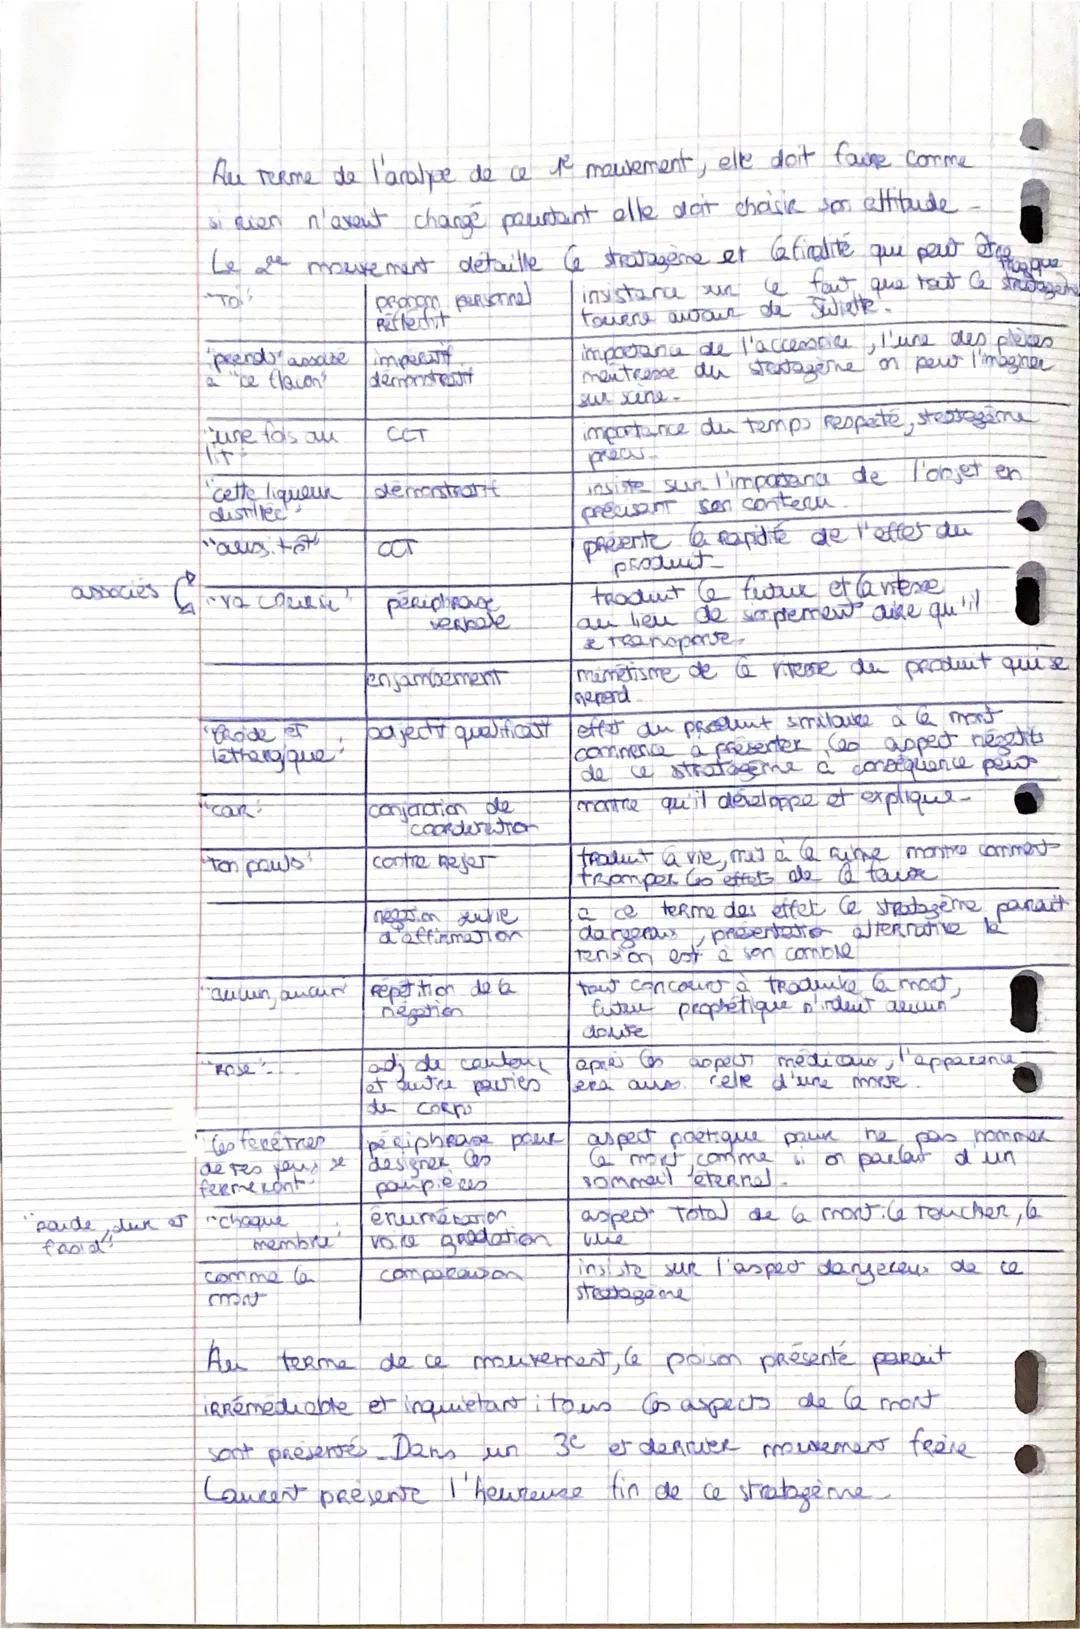 Au terme de l'analyse de ce 1e mouvement, elle doit faire comme
si rien n'avait changé pourtant elle doit choisir son attitude.
Le 2e mouvement détaille le stratagème et la finalité que peut être
tragique
"Toi" pronom personnel insistance sur le fait que tout ce stratagème
réfléchit tourne autour de Juliette.
"prends" associé impératif importance de l'accessoire, l'une des pièces
à "ce flacon" démonstratif maitresse du stratagème on peut l'imaginer
sur scène.
"une fois au CCT importance du temps respecté, stratagème
lit" précis.
"cette liqueur démonstratif insiste sur l'importance de l'objet en
distillée" précisant son contenu.
"aussitôt" CCT présente la rapidité de l'effet du
produit.
associés "va courir" périphrase traduit le futur et la vitesse
verbale au lieu de simplement dire qu'il
se transporte.
enjambement mimétisme de la vitesse du produit qui se
répend.
"froide et adjectif qualificatif effet du produit similaire à la mort
léthargique" commence à présenter les aspect négatifs
de ce stratagème à conséquence peur
"car" conjonction de montre qu'il développe et explique.
coordination
"ton pouls" contre rejet traduit la vie, mis à la rime montre comment
tromper les effets de la fausse
négation suivie à ce terme des effet le stratagème parait
d'affirmation dangereux, présentation alternative la
tension est à son comble
"aucun, aucun" répétition de la tout concourt à traduire la mort,
négation futur prophétique n'induit aucun
doute
"rose".. adj de couleur après les aspects médicaux, l'apparence
et autre parties sera aussi celle d'une morte.
du corps
"les fenêtres périphrase pour aspect poétique pour ne pas nommer
de tes yeux se désigner les la mort, comme si on parlait d'un
fermeront" paupières sommeil éternel.
"raide, dur et "chaque énumération aspect total de la mort: le toucher, la
froid" membre" voire gradation vue
comme la comparaison insiste sur l'aspect dangereux de ce
mort stratagème
Au terme de ce mouvement, le poison présenté parait
irrémédiable et inquiétant: tous les aspects de la mort
sont présentés. Dans un 3e et dernier mouvement frère
Laurent présente l'heureuse fin de ce stratagème.